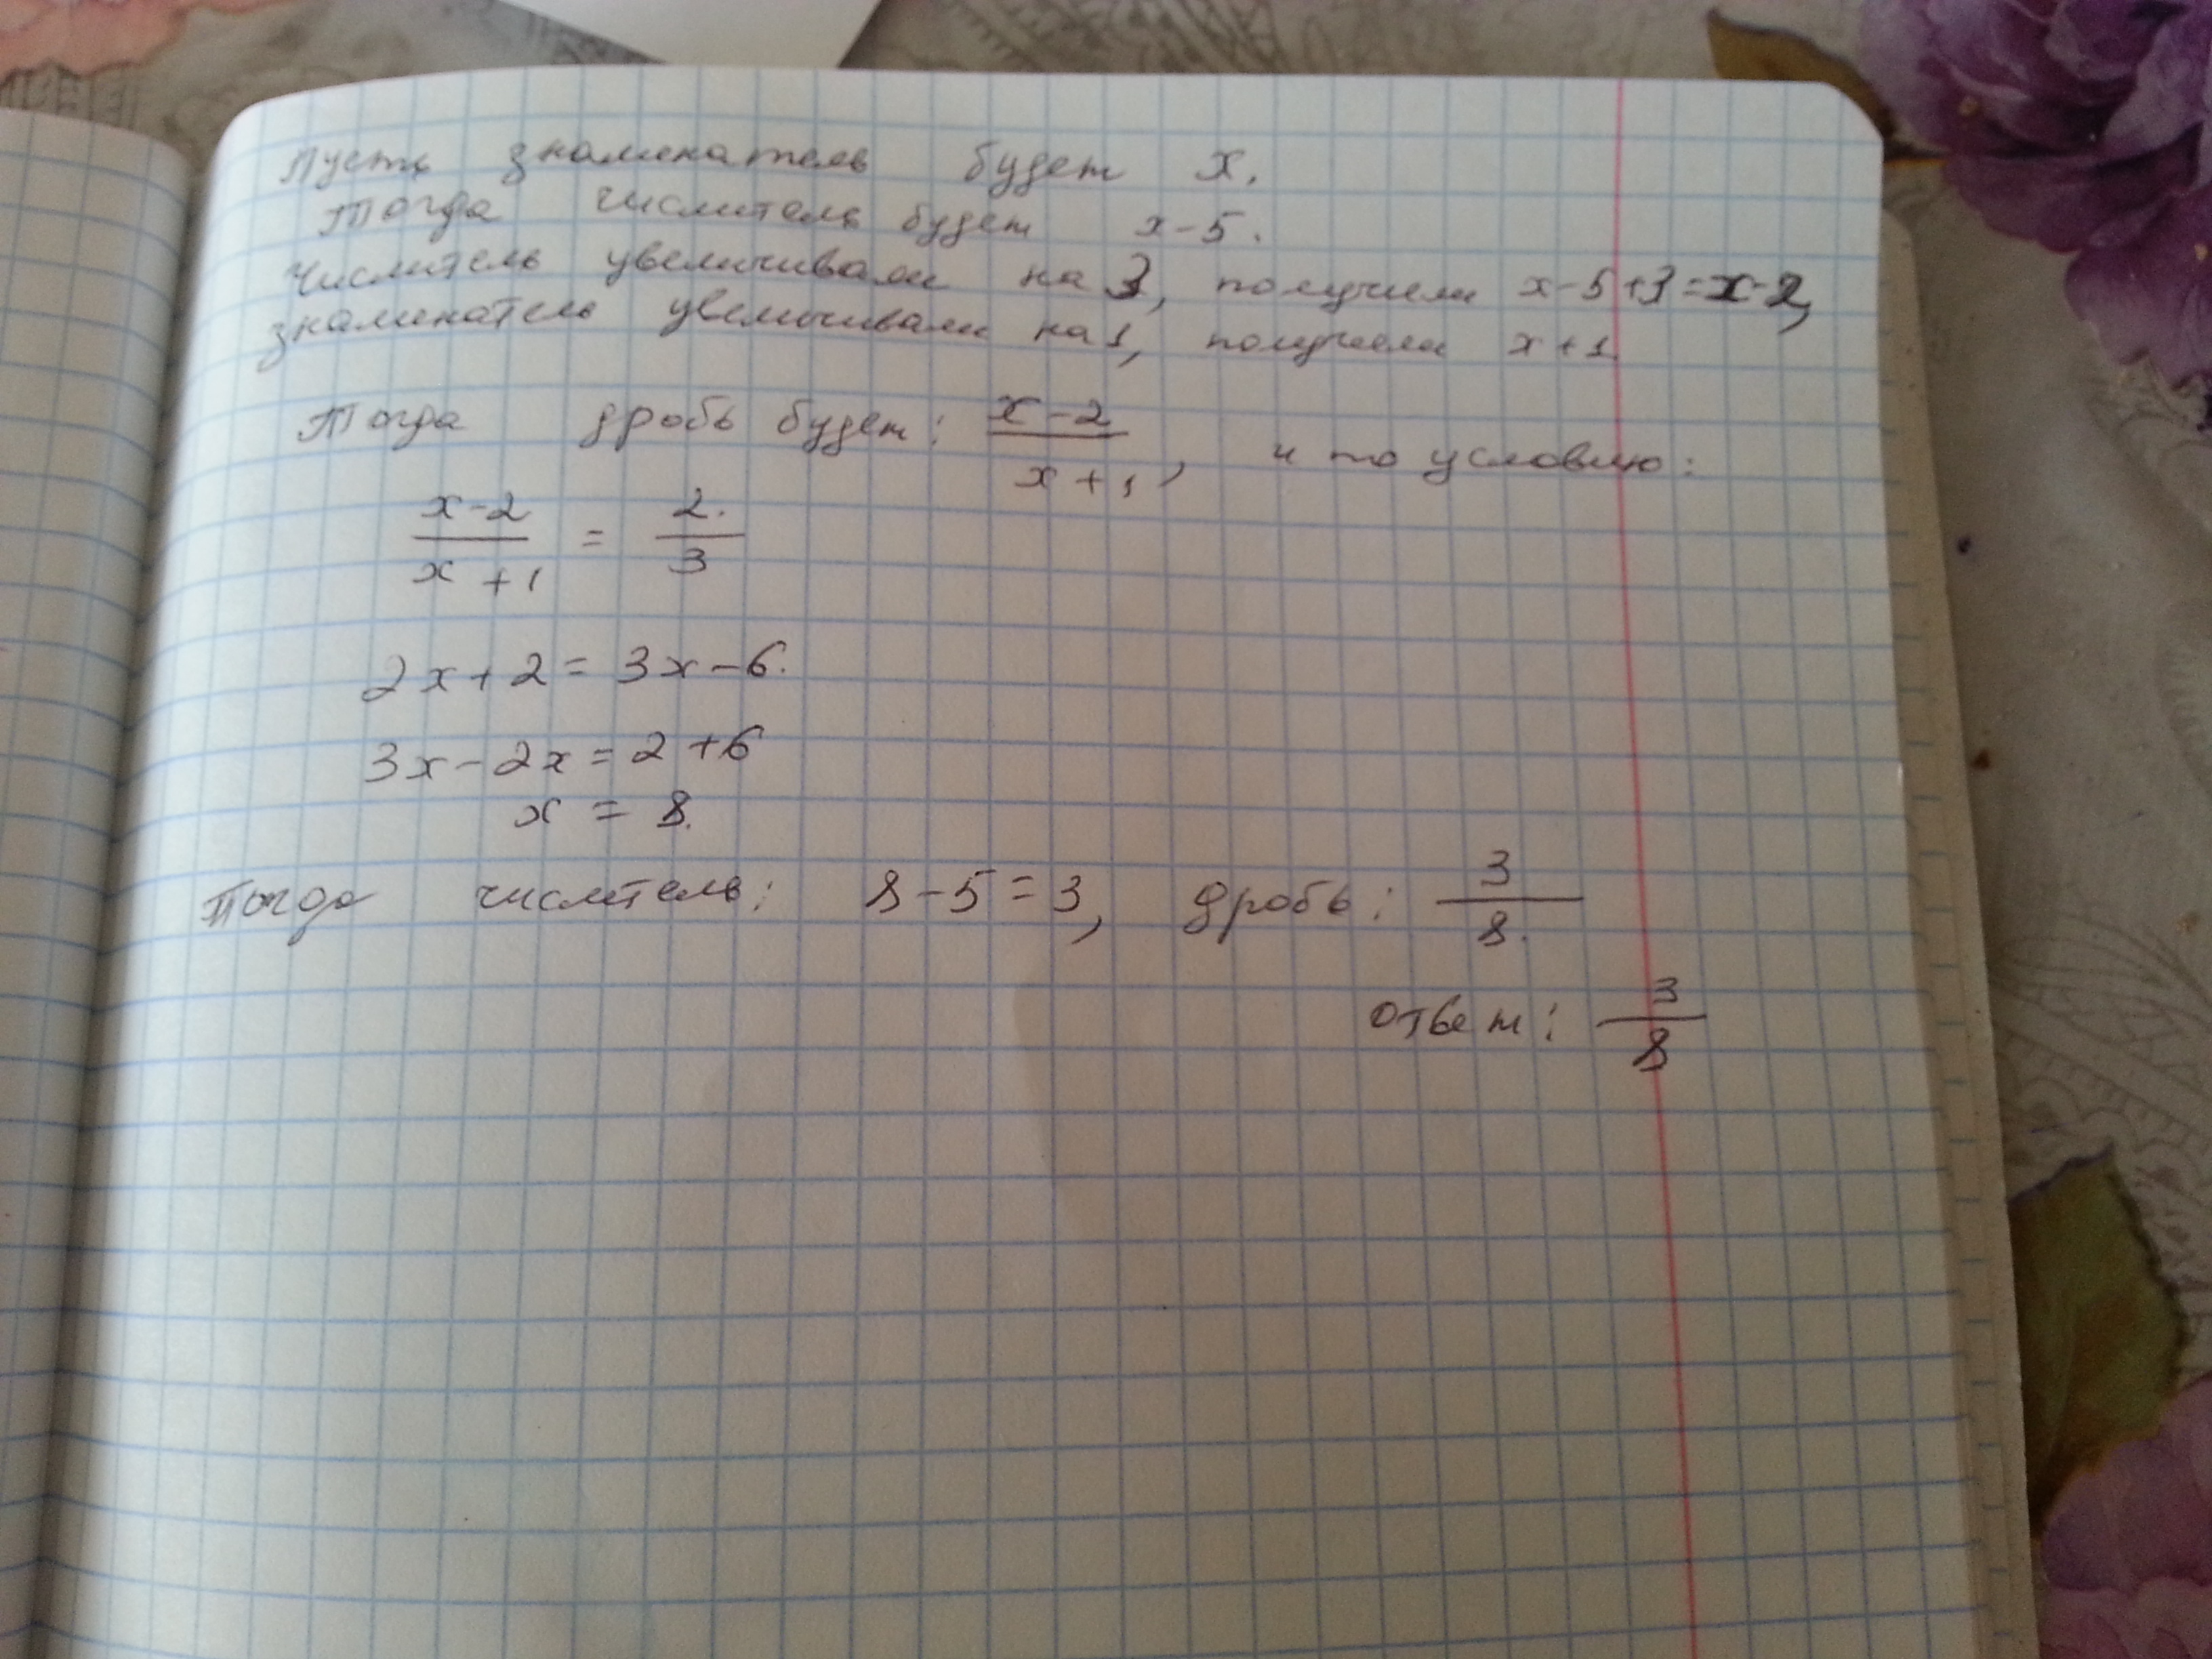 Пусть знаменатель будет x.
Тогда числитель будет x-5.
Числитель увеличивали на 3, получили x-5+3=x-2,
знаменатель увеличивали на 1, получили x+1
Тогда дробь будет: \frac{x-2}{x+1}, и по условию:
\frac{x-2}{x+1} = \frac{2}{3}
2x+2=3x-6.
3x-2x=2+6
x = 8.
Тогда числитель: 8-5=3, дробь: \frac{3}{8}.
ответ: \frac{3}{8}